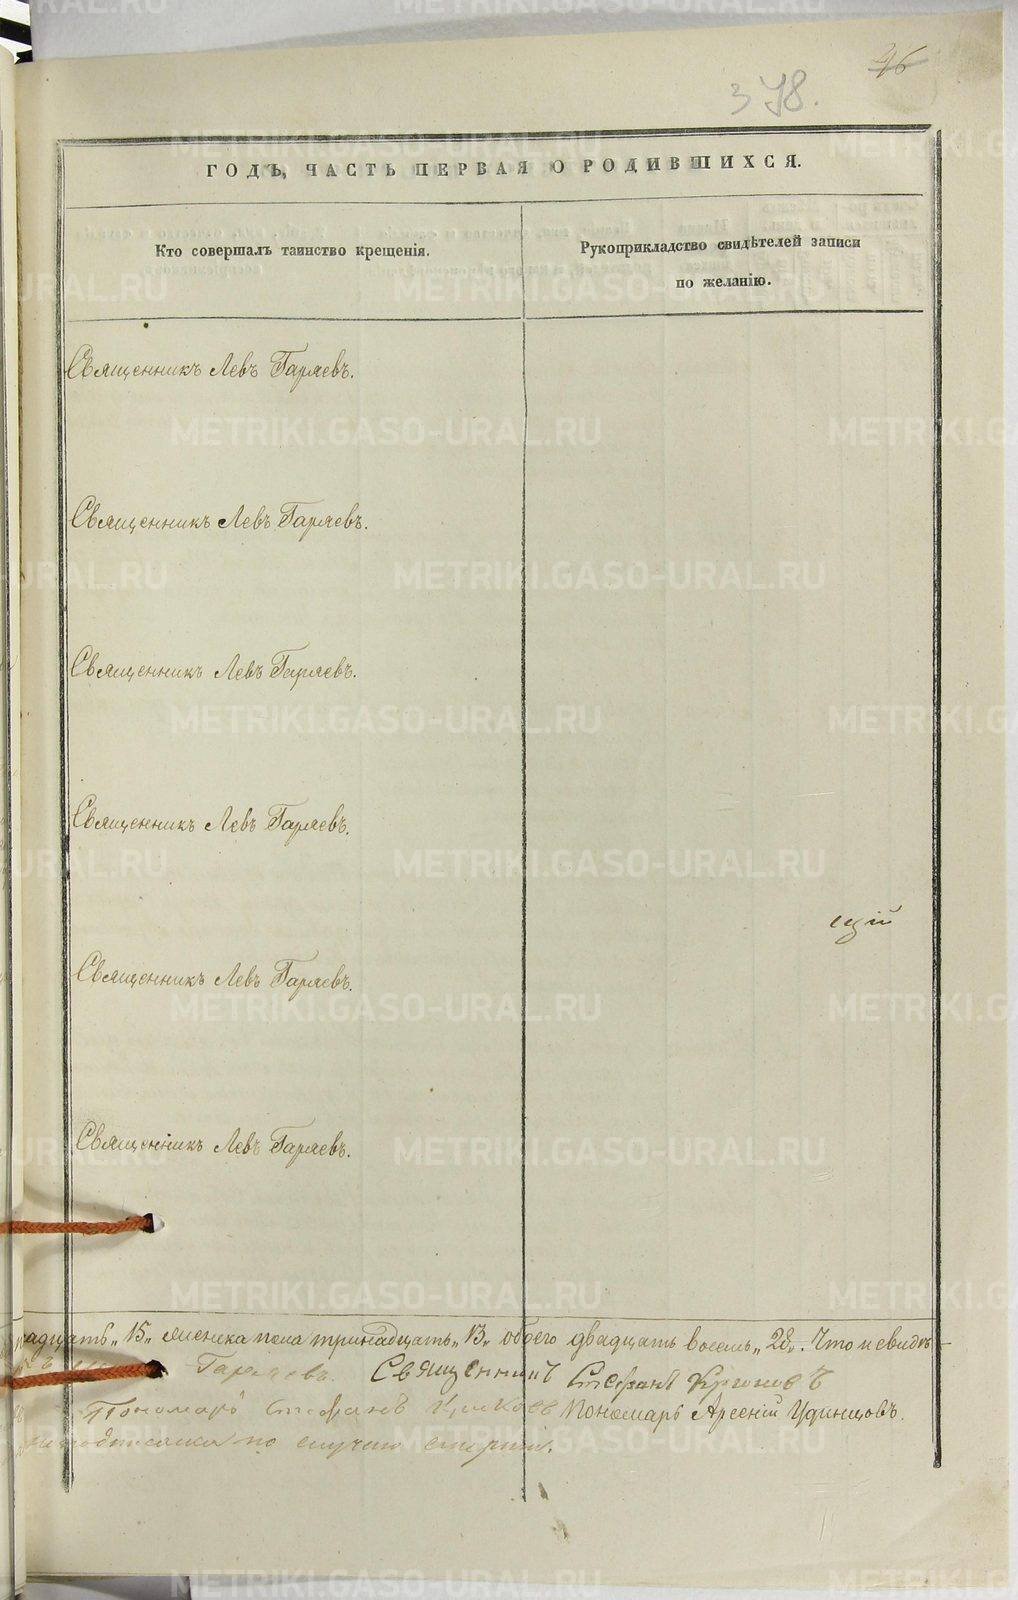 46
378.
ГОДЪ, ЧАСТЬ ПЕРВАЯ О РОДИВШИХСЯ.
Кто совершалъ таинство крещенія.
Рукоприкладство свидѣтелей записи
по желанію.
Священникъ Левъ Гаряевъ.
Священникъ Левъ Гаряевъ.
Священникъ Левъ Гаряевъ.
Священникъ Левъ Гаряевъ.
щій
Священникъ Левъ Гаряевъ.
Священникъ Левъ Гаряевъ.
надцать „15„ женска пола тринадцать „13„ обоего двадцать восемь „28„. Что и свидѣ-
Гаряевъ. Священникъ Стефанъ
Пономарь Стефанъ Пономарь Арсеній Удинцовъ.
по случаю смерти.
METRIKI.GASO-URAL.RU